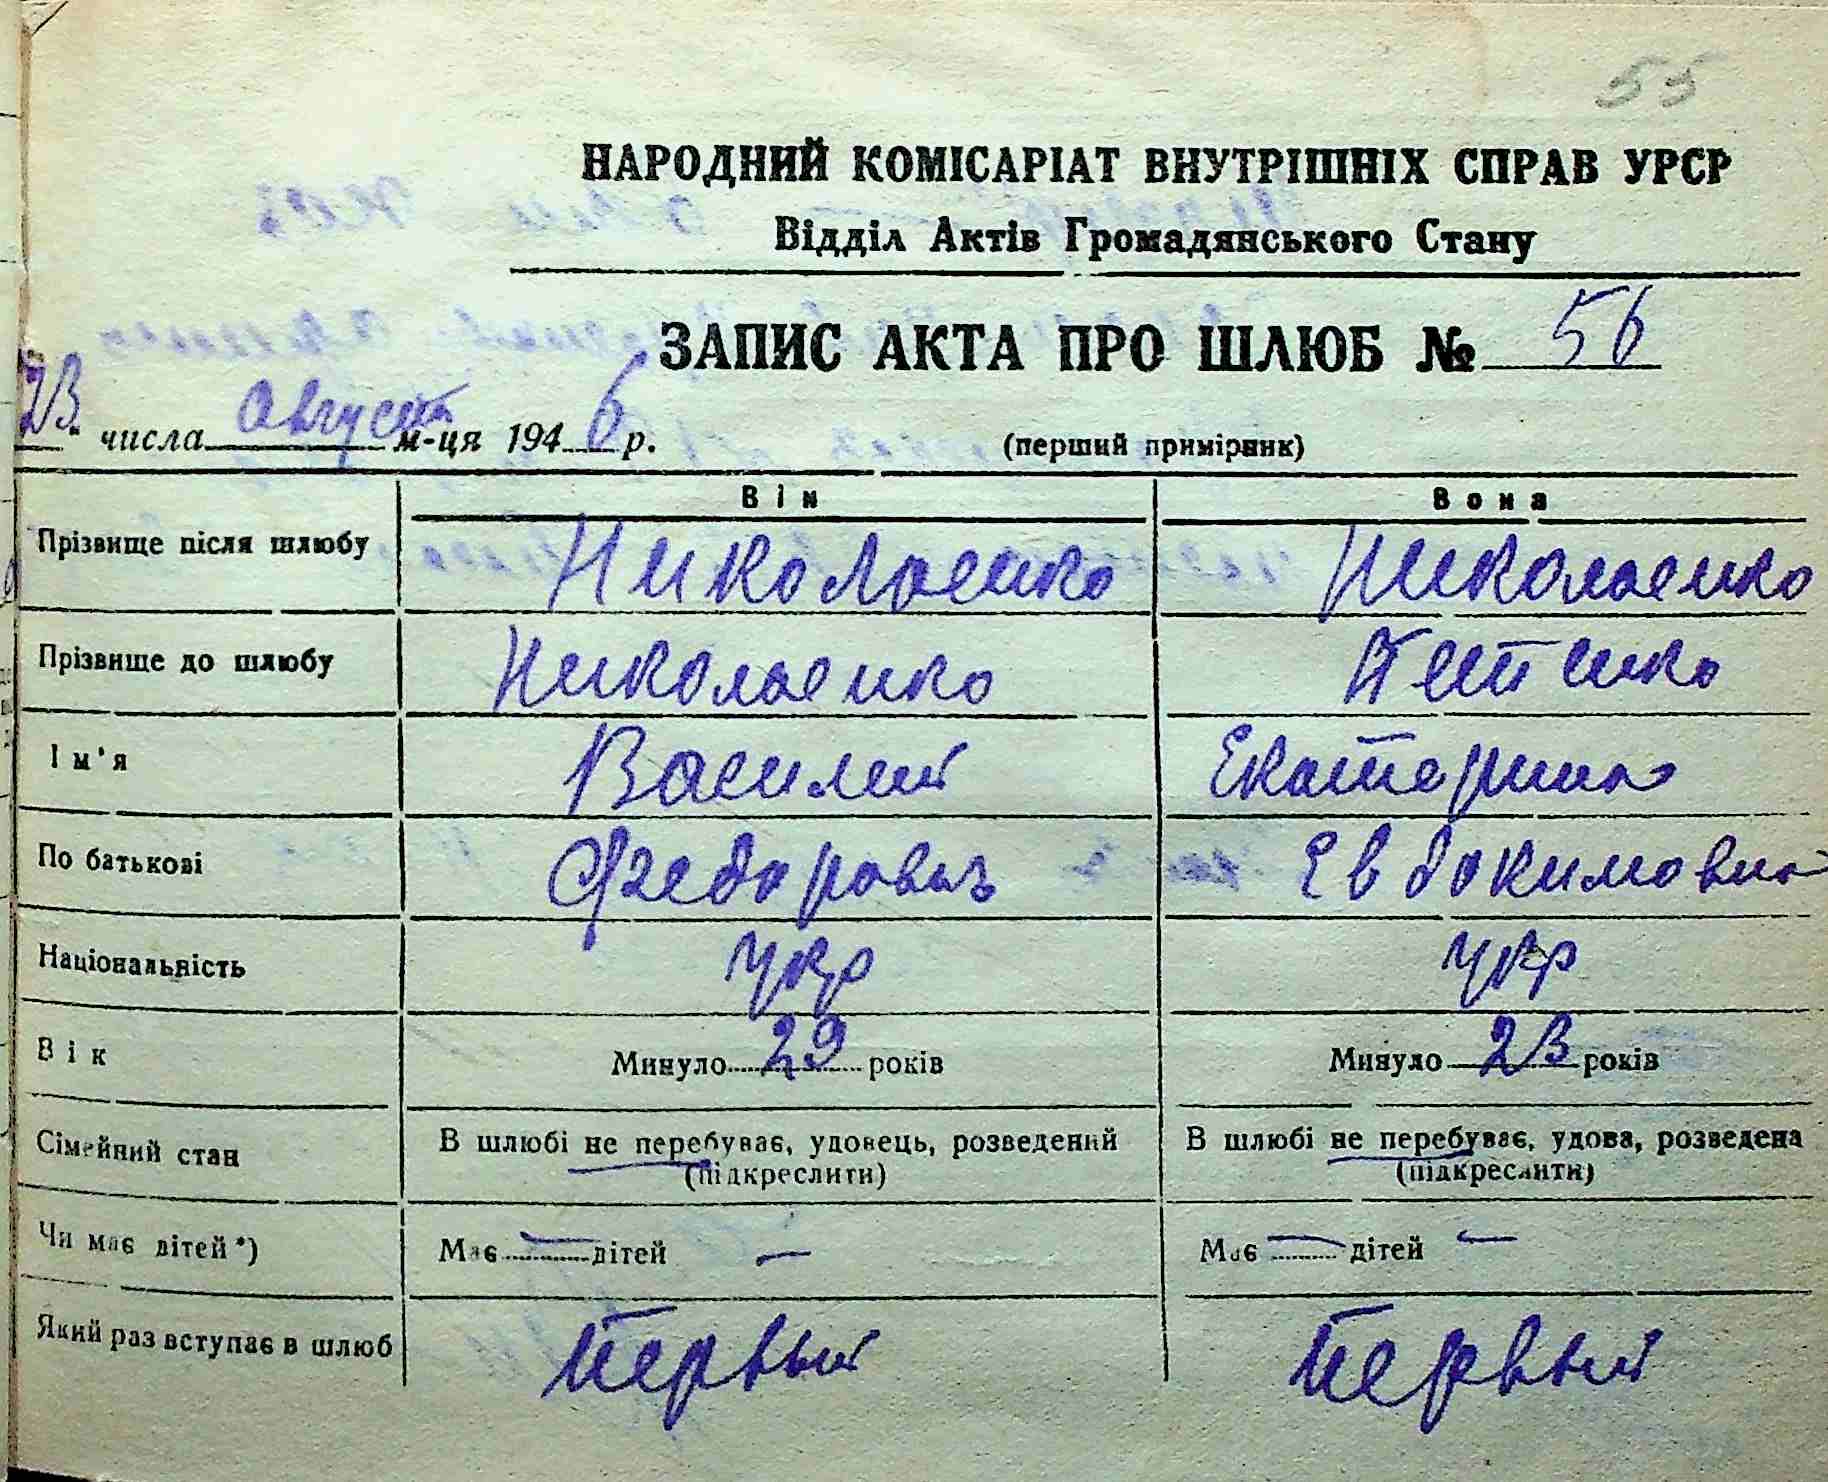 55
НАРОДНИЙ КОМІСАРІАТ ВНУТРІШНІХ СПРАВ УРСР
Відділ Актів Громадянського Стану
ЗАПИС АКТА ПРО ШЛЮБ № 56
23 числа август м-ця 1946 р. (перший примірник)
Він Вона
Прізвище після шлюбу Николаенко Николаенко
Прізвище до шлюбу Николаенко
Ім'я Василий Екатерина
По батькові Федоровыч Евдокимовна
Національність укр укр
Вік Минуло 29 років Минуло 23 років
Сімейний стан В шлюбі не перебуває, удовець, розведений В шлюбі не перебуває, удова, розведена
(підкреслити) (підкреслити)
Чи має дітей*) Має — дітей — Має — дітей —
Який раз вступає в шлюб Первый Первый